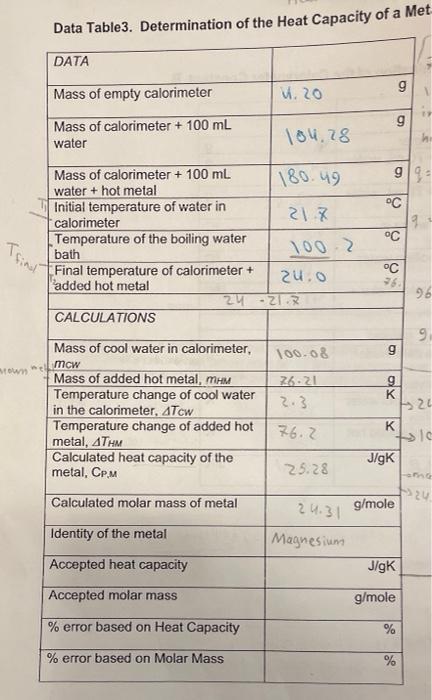 Data Table3. Determination of the Heat Capacity of a Met
DATA
Mass of empty calorimeter 4.20 g
Mass of calorimeter + 100 mL g
water 104.28
Mass of calorimeter + 100 mL 180.49 g q=
water + hot metal
Initial temperature of water in 21.7 °C
calorimeter
Temperature of the boiling water 100.2 °C
bath
Tfinal
Final temperature of calorimeter + 24.0 °C
added hot metal 76.
24 - 21.7
96
CALCULATIONS
Mass of cool water in calorimeter, 100.08 g
mcw
Mass of added hot metal, mHM 76.21 g
Temperature change of cool water 2.3 K
in the calorimeter, ΔTcw
Temperature change of added hot 76.2 K
metal, ΔTHM
Calculated heat capacity of the J/gK
metal, CP,M 25.28
Calculated molar mass of metal 24.31 g/mole
Identity of the metal Magnesium
Accepted heat capacity J/gK
Accepted molar mass g/mole
% error based on Heat Capacity %
% error based on Molar Mass %